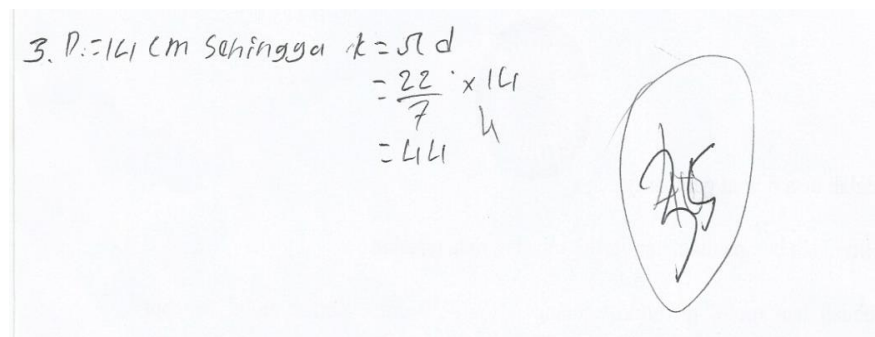 3. D:=14 cm Sehingga k = π d
= 22/7 × 14
= 44